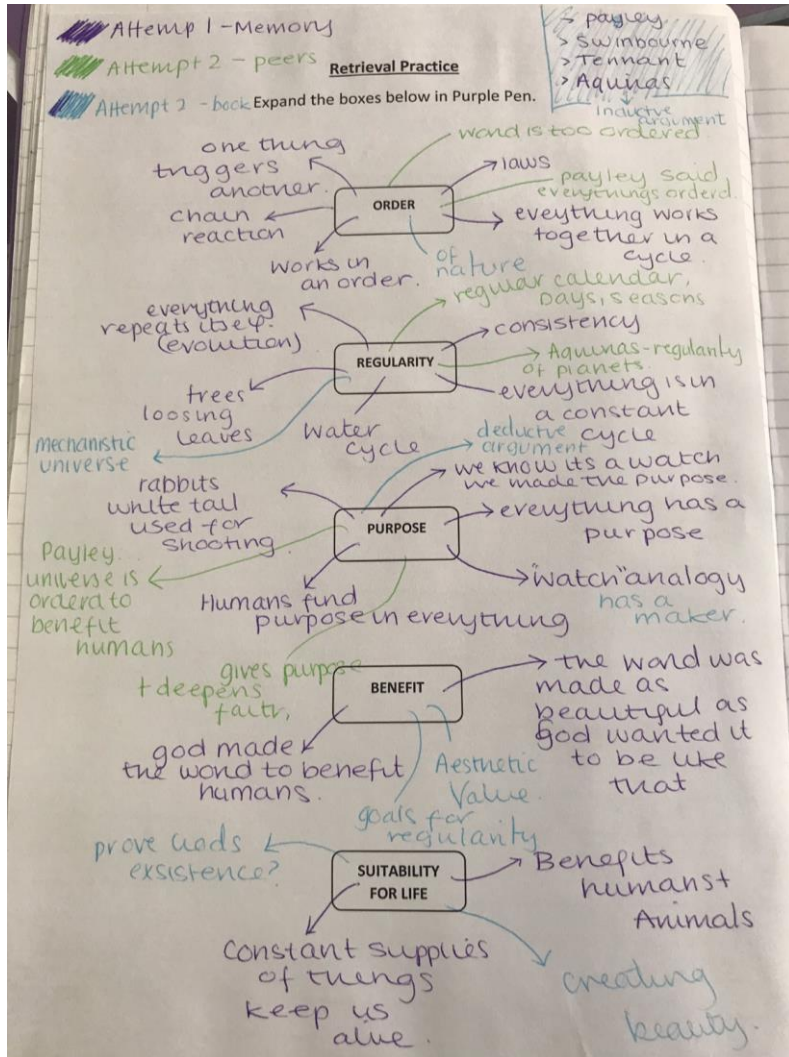 Attemp 1 - Memory
Attempt 2 - peers
Retrieval Practice
Attempt 3 - book
Expand the boxes below in Purple Pen.
> payley
> Swinbourne
> Tennant
> Aquinas
inductive
argument
ORDER
one thing
triggers
another.
chain
reaction
works in
an order.
of
nature
world is too ordered
laws
payley said
everythings orderd
eveything works
together in a
cycle.
REGULARITY
everything
repeats itself.
(evolution)
trees
loosing
leaves
mechanistic
universe
water
cycle
regular calendar,
Days, seasons
consistency
Aquinas - regularity
of planets.
everything is in
a constant
cycle
PURPOSE
deductive
argument
we know its a watch
we made the purpose.
everything has a
purpose
"watch" analogy
has a
maker.
rabbits
white tail
used for
shooting.
Payley
universe is
orderd to
benefit
humans
Humans find
purpose in everything
gives purpose
+ deepens
faith,
BENEFIT
god made
the world to benefit
humans.
Aesthetic
Value.
goals for
regularity
the world was
made as
beautiful as
god wanted it
to be like
that
SUITABILITY
FOR LIFE
prove Gods
exsistence?
Benefits
humans +
Animals
Constant supplies
of things
keep us
alive.
creating
beauty.